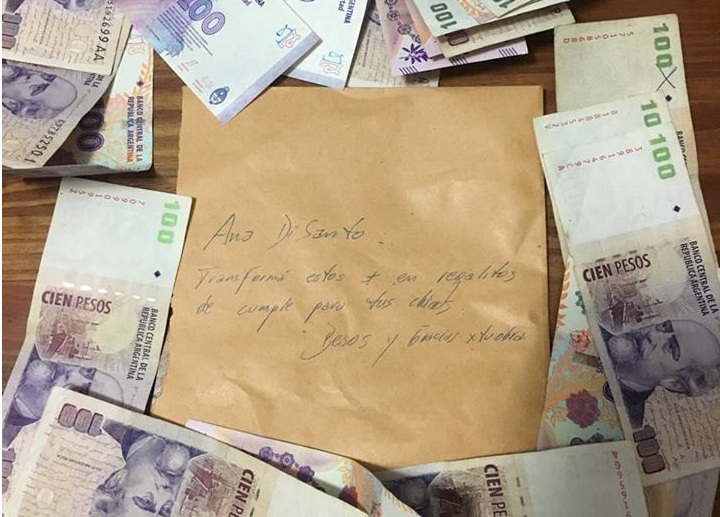 Ana Di Santo:
Transformá estos + en regalitos
de cumple para tus chicos.
Besos y Gracias x tu obra
100
100
BANCO CENTRAL DE LA
REPÚBLICA ARGENTINA
100
CIEN PESOS
BANCO CENTRAL DE LA
REPÚBLICA ARGENTINA
100
CIEN
CIEN PES
100
10 100
CIEN PESOS
BANCO CENTRAL DE LA
REPÚBLICA ARGENTINA
100